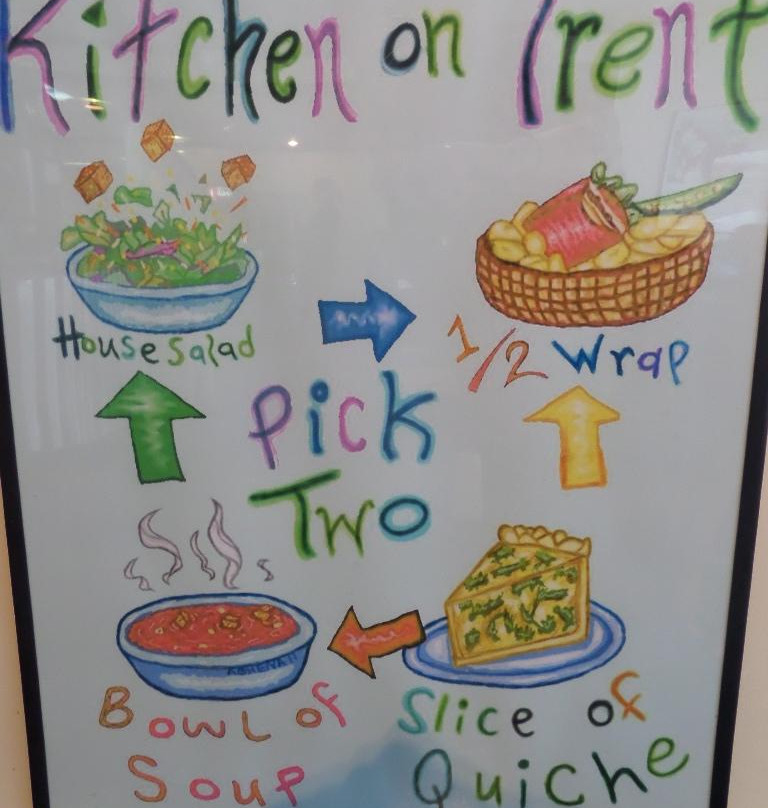 Kitchen on Trent
House Salad
1/2 Wrap
Pick
Two
Bowl of
Soup
Slice of
Quiche